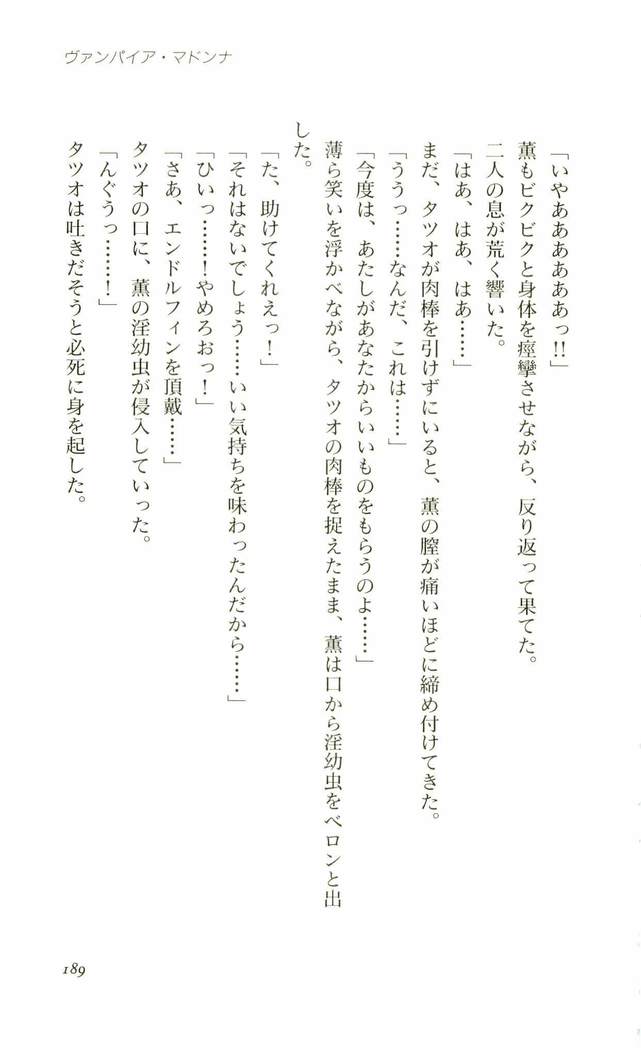 ヴァンパイア・マドンナ
「いやああああああっ!!」
薫もビクビクと身体を痙攣させながら、反り返って果てた。
二人の息が荒く響いた。
「はあ、はあ、はあ……」
まだ、タツオが肉棒を引けずにいると、薫の膣が痛いほどに締め付けてきた。
「ううっ……なんだ、これは……」
「今度は、あたしがあなたからいいものをもらうのよ……」
薄ら笑いを浮かべながら、タツオの肉棒を捉えたまま、薫は口から淫幼虫をベロンと出
した。
「た、助けてくれえっ!」
「それはないでしょう……いい気持ちを味わったんだから……」
「ひいっ……!やめろおっ!」
「さあ、エンドルフィンを頂戴……」
タツオの口に、薫の淫幼虫が侵入していった。
「んぐうっ……!」
タツオは吐きだそうと必死に身を起した。
189